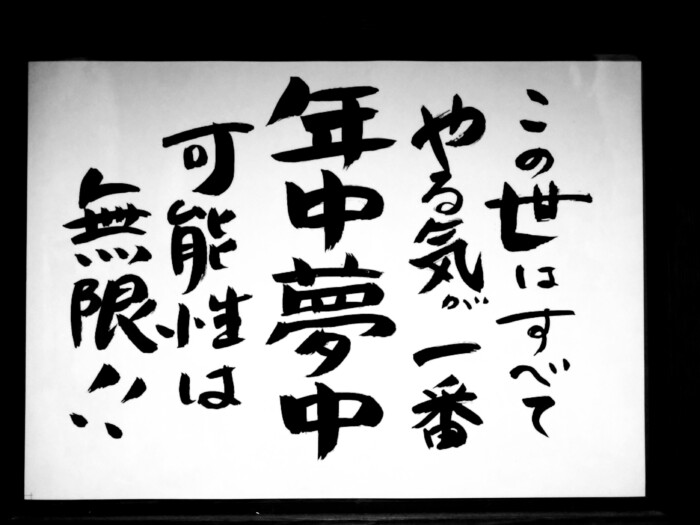 この世はすべて
やる気が一番
年中夢中
可能性は
無限!!